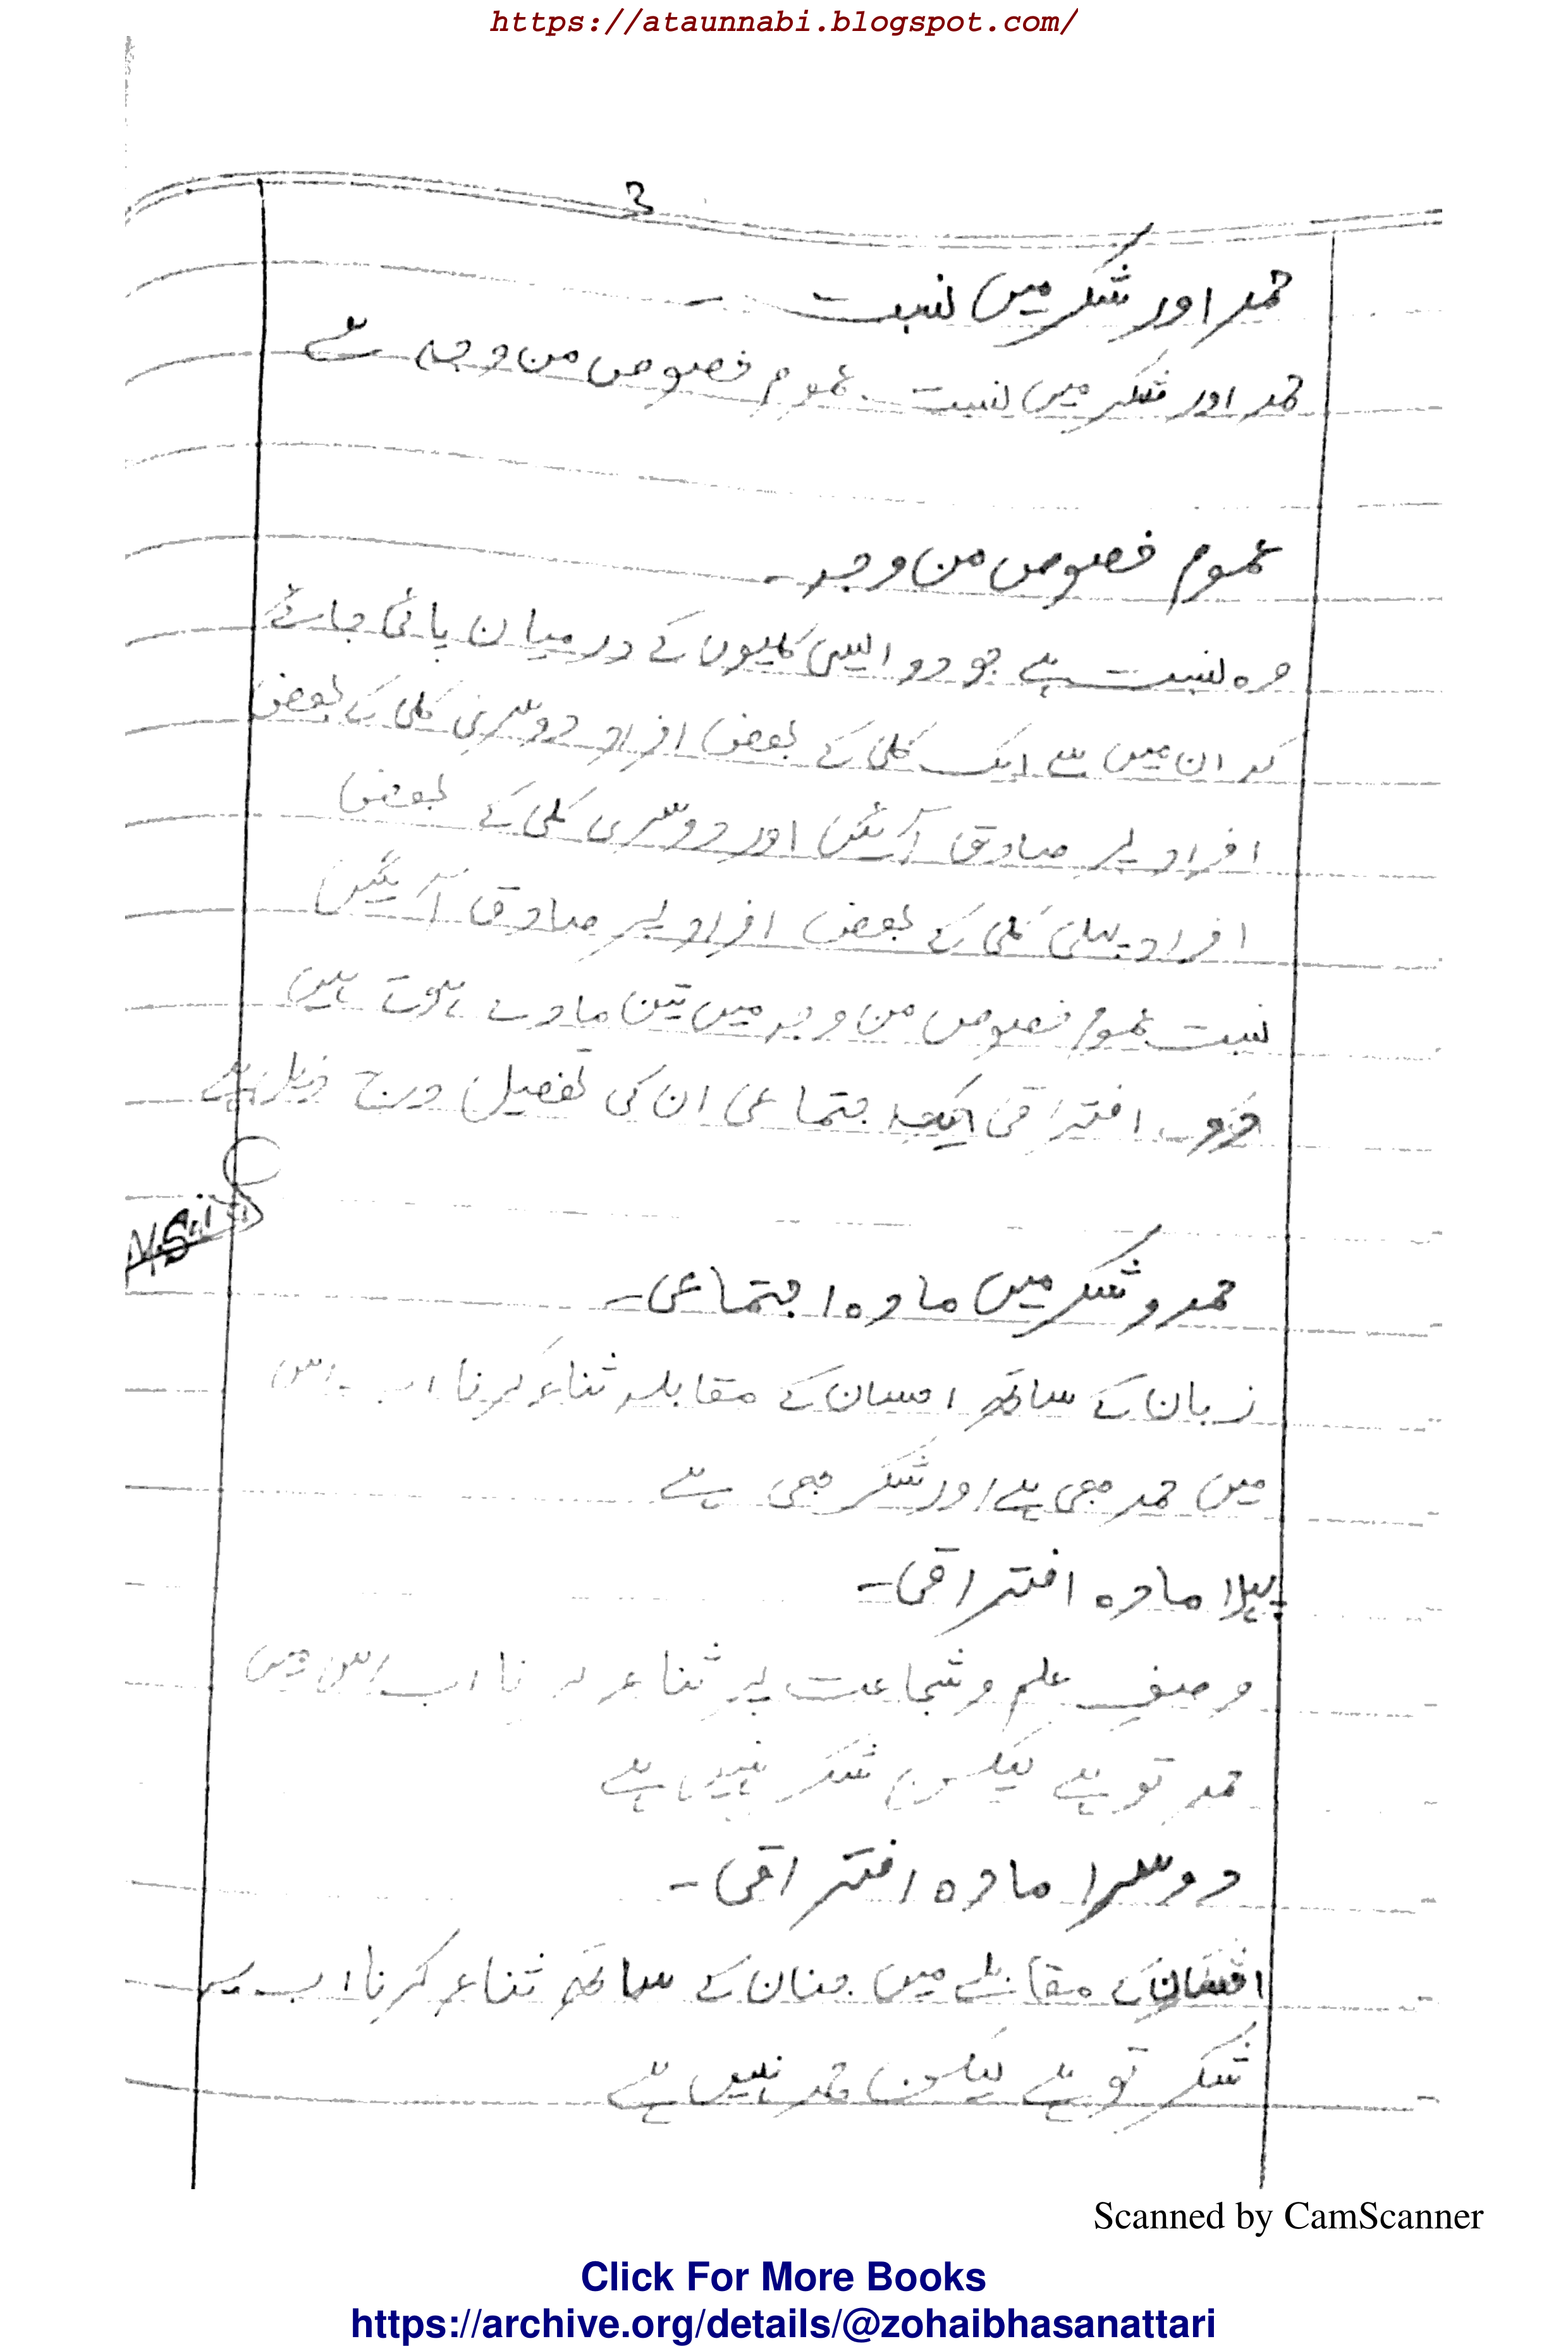 https://ataunnabi.blogspot.com/
3
حمد اور شکر میں نسبت ۔
حمد اور شکر میں نسبت عموم خصوص من وجہ ہے
عموم خصوص من وجہ ۔
وہ نسبت ہے جو دو ایسی کلیوں کے درمیان پائی جائے
کہ ان میں سے ایک کلی کے بعض افراد دوسری کلی کے بعض
افراد پر صادق آئیں اور دوسری کلی کے بعض
افراد پہلی کلی کے بعض افراد پر صادق آئیں
نسبت عموم خصوص من وجہ میں تین مادے ہوتے ہیں
دو افتراقی ایک اجتماعی ان کی تفصیل درج ذیل ہے
حمد و شکر میں مادہ اجتماعی ۔
زبان کے ساتھ احسان کے مقابلہ ثناء کرنا اب اس
میں حمد بھی ہے اور شکر بھی ہے
پہلا مادہ افتراقی ۔
وصفِ علم و شجاعت پر ثناء کرنا اب اس میں
حمد تو ہے لیکن شکر نہیں ہے
دوسرا مادہ افتراقی ۔
احسان کے مقابلے میں جنان کے ساتھ ثناء کرنا اب یہ
شکر تو ہے لیکن حمد نہیں ہے
Scanned by CamScanner
Click For More Books
https://archive.org/details/@zohaibhasanattari